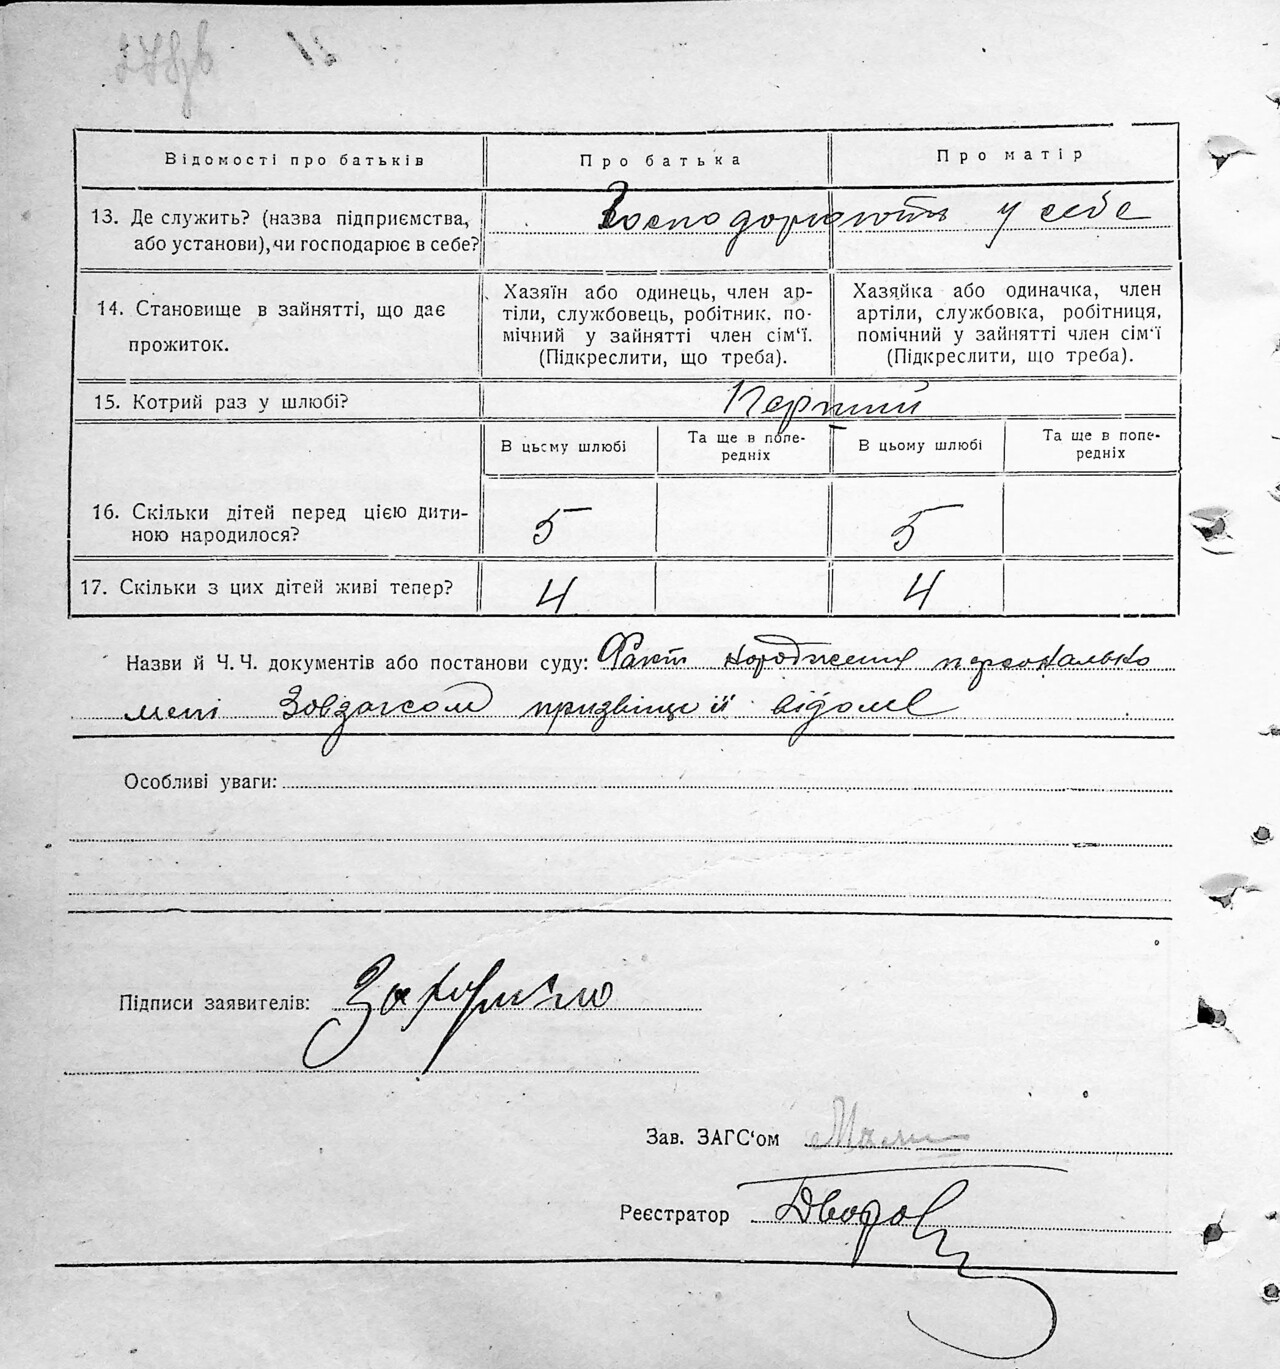 Відомості про батьків
Про батька
Про матір
13. Де служить? (назва підприємства, або установи), чи господарює в себе?
Господорюють у себе
14. Становище в зайнятті, що дає прожиток.
Хазяїн або одинець, член ар-
тіли, службовець, робітник. по-
мічний у зайнятті член сім'ї.
(Підкреслити, що треба).
Хазяйка або одиначка, член
артіли, службовка, робітниця,
помічний у зайнятті член сім'ї
(Підкреслити, що треба).
15. Котрий раз у шлюбі?
Перший
В цьсму шлюбі
Та ще в попе-
редніх
В цьому шлюбі
Та ще в попе-
редніх
16. Скільки дітей перед цією дити-
ною народилося?
5
5
17. Скільки з цих дітей живі тепер?
4
4
Назви й Ч. Ч. документів або постанови суду: Факт народження персонально
мені Завзагсом призвіще її відоме
Особливі уваги:
Підписи заявителів:
Зав. ЗАГС'ом
Реєстратор